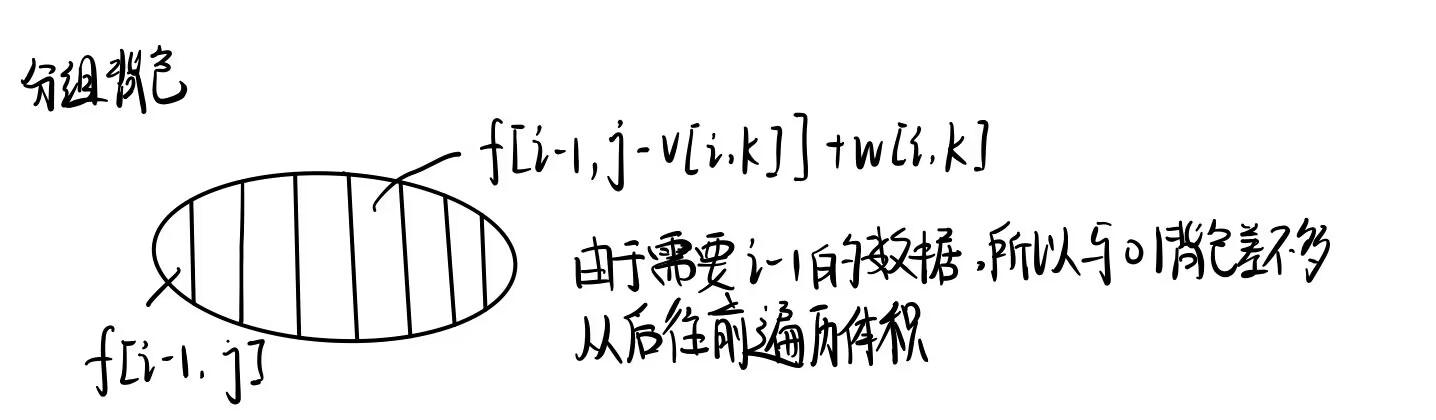 分组背包
f[i-1,j-v[i,k]]+w[i,k]
由于需要i-1的数据,所以与01背包差不多
从后往前遍历体积
f[i-1,j]